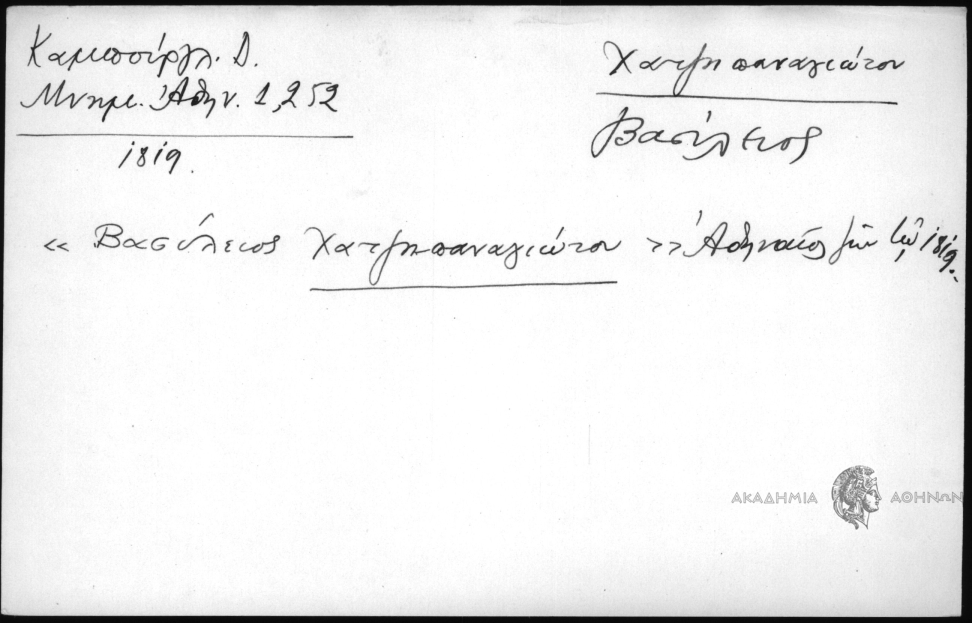 Καμπούρογλ. Δ.
Μνημ. Ἀθην. 1,252
1819.
Χατζηπαναγιώτου
Βασίλειος
« Βασίλειος Χατζηπαναγιώτου » Ἀθηναῖος ζῶν τῷ 1819.
ΑΚΑΔΗΜΙΑ ΑΘΗΝΩΝ